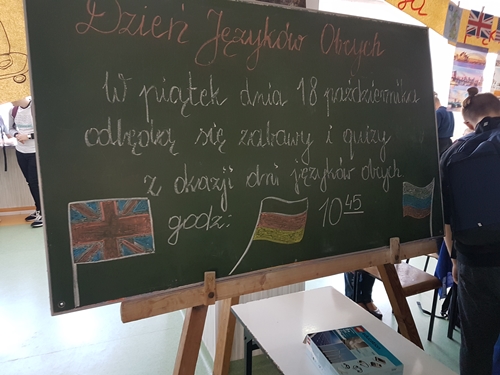 Dzień Języków Obcych
W piątek dnia 18 października
odbędą się zabawy i quizy
z okazji dni języków obcych.
godz: 10 45